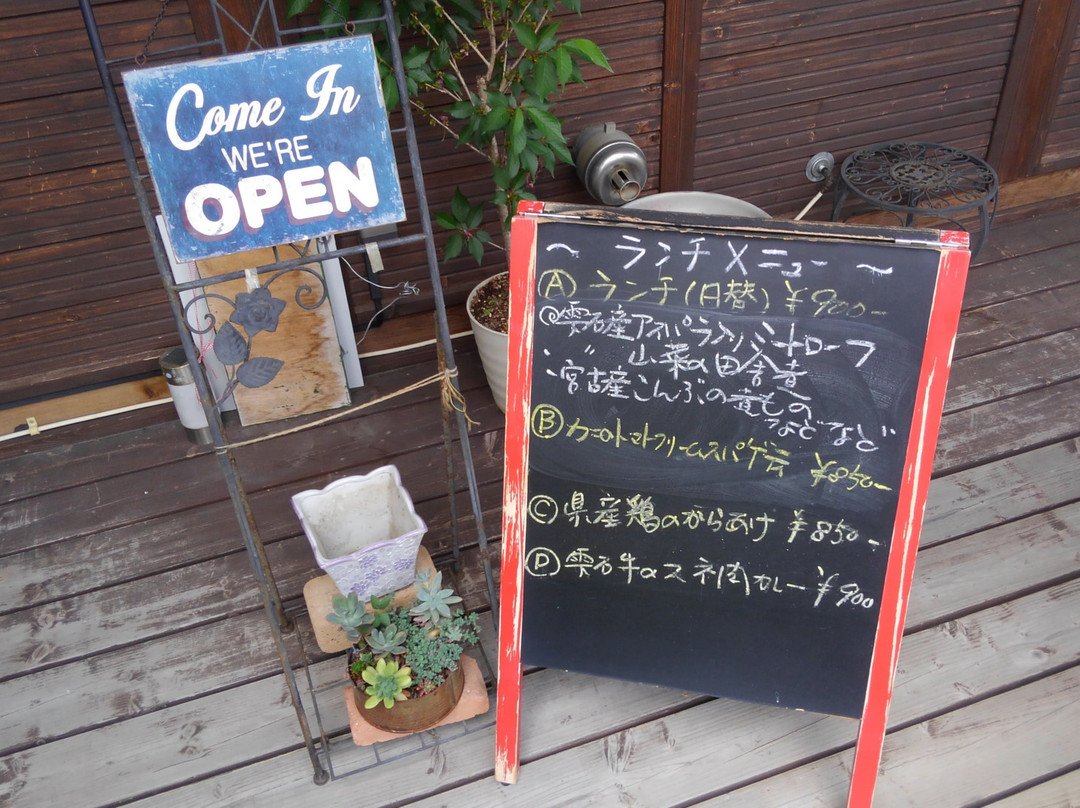 Come In
WE'RE
OPEN
〜 ランチメニュー 〜
Ⓐ ランチ(日替) ¥900-
◎雫石産アスパラスハム十ロ-フ
〃 山菜の田舎煮
〃 宮古産こんぶの煮もの
などなど
Ⓑ カニのトマトクリームスパゲティ ¥850-
Ⓒ 県産鶏のからあげ ¥850-
Ⓓ 雫石牛のスネ肉カレー ¥900